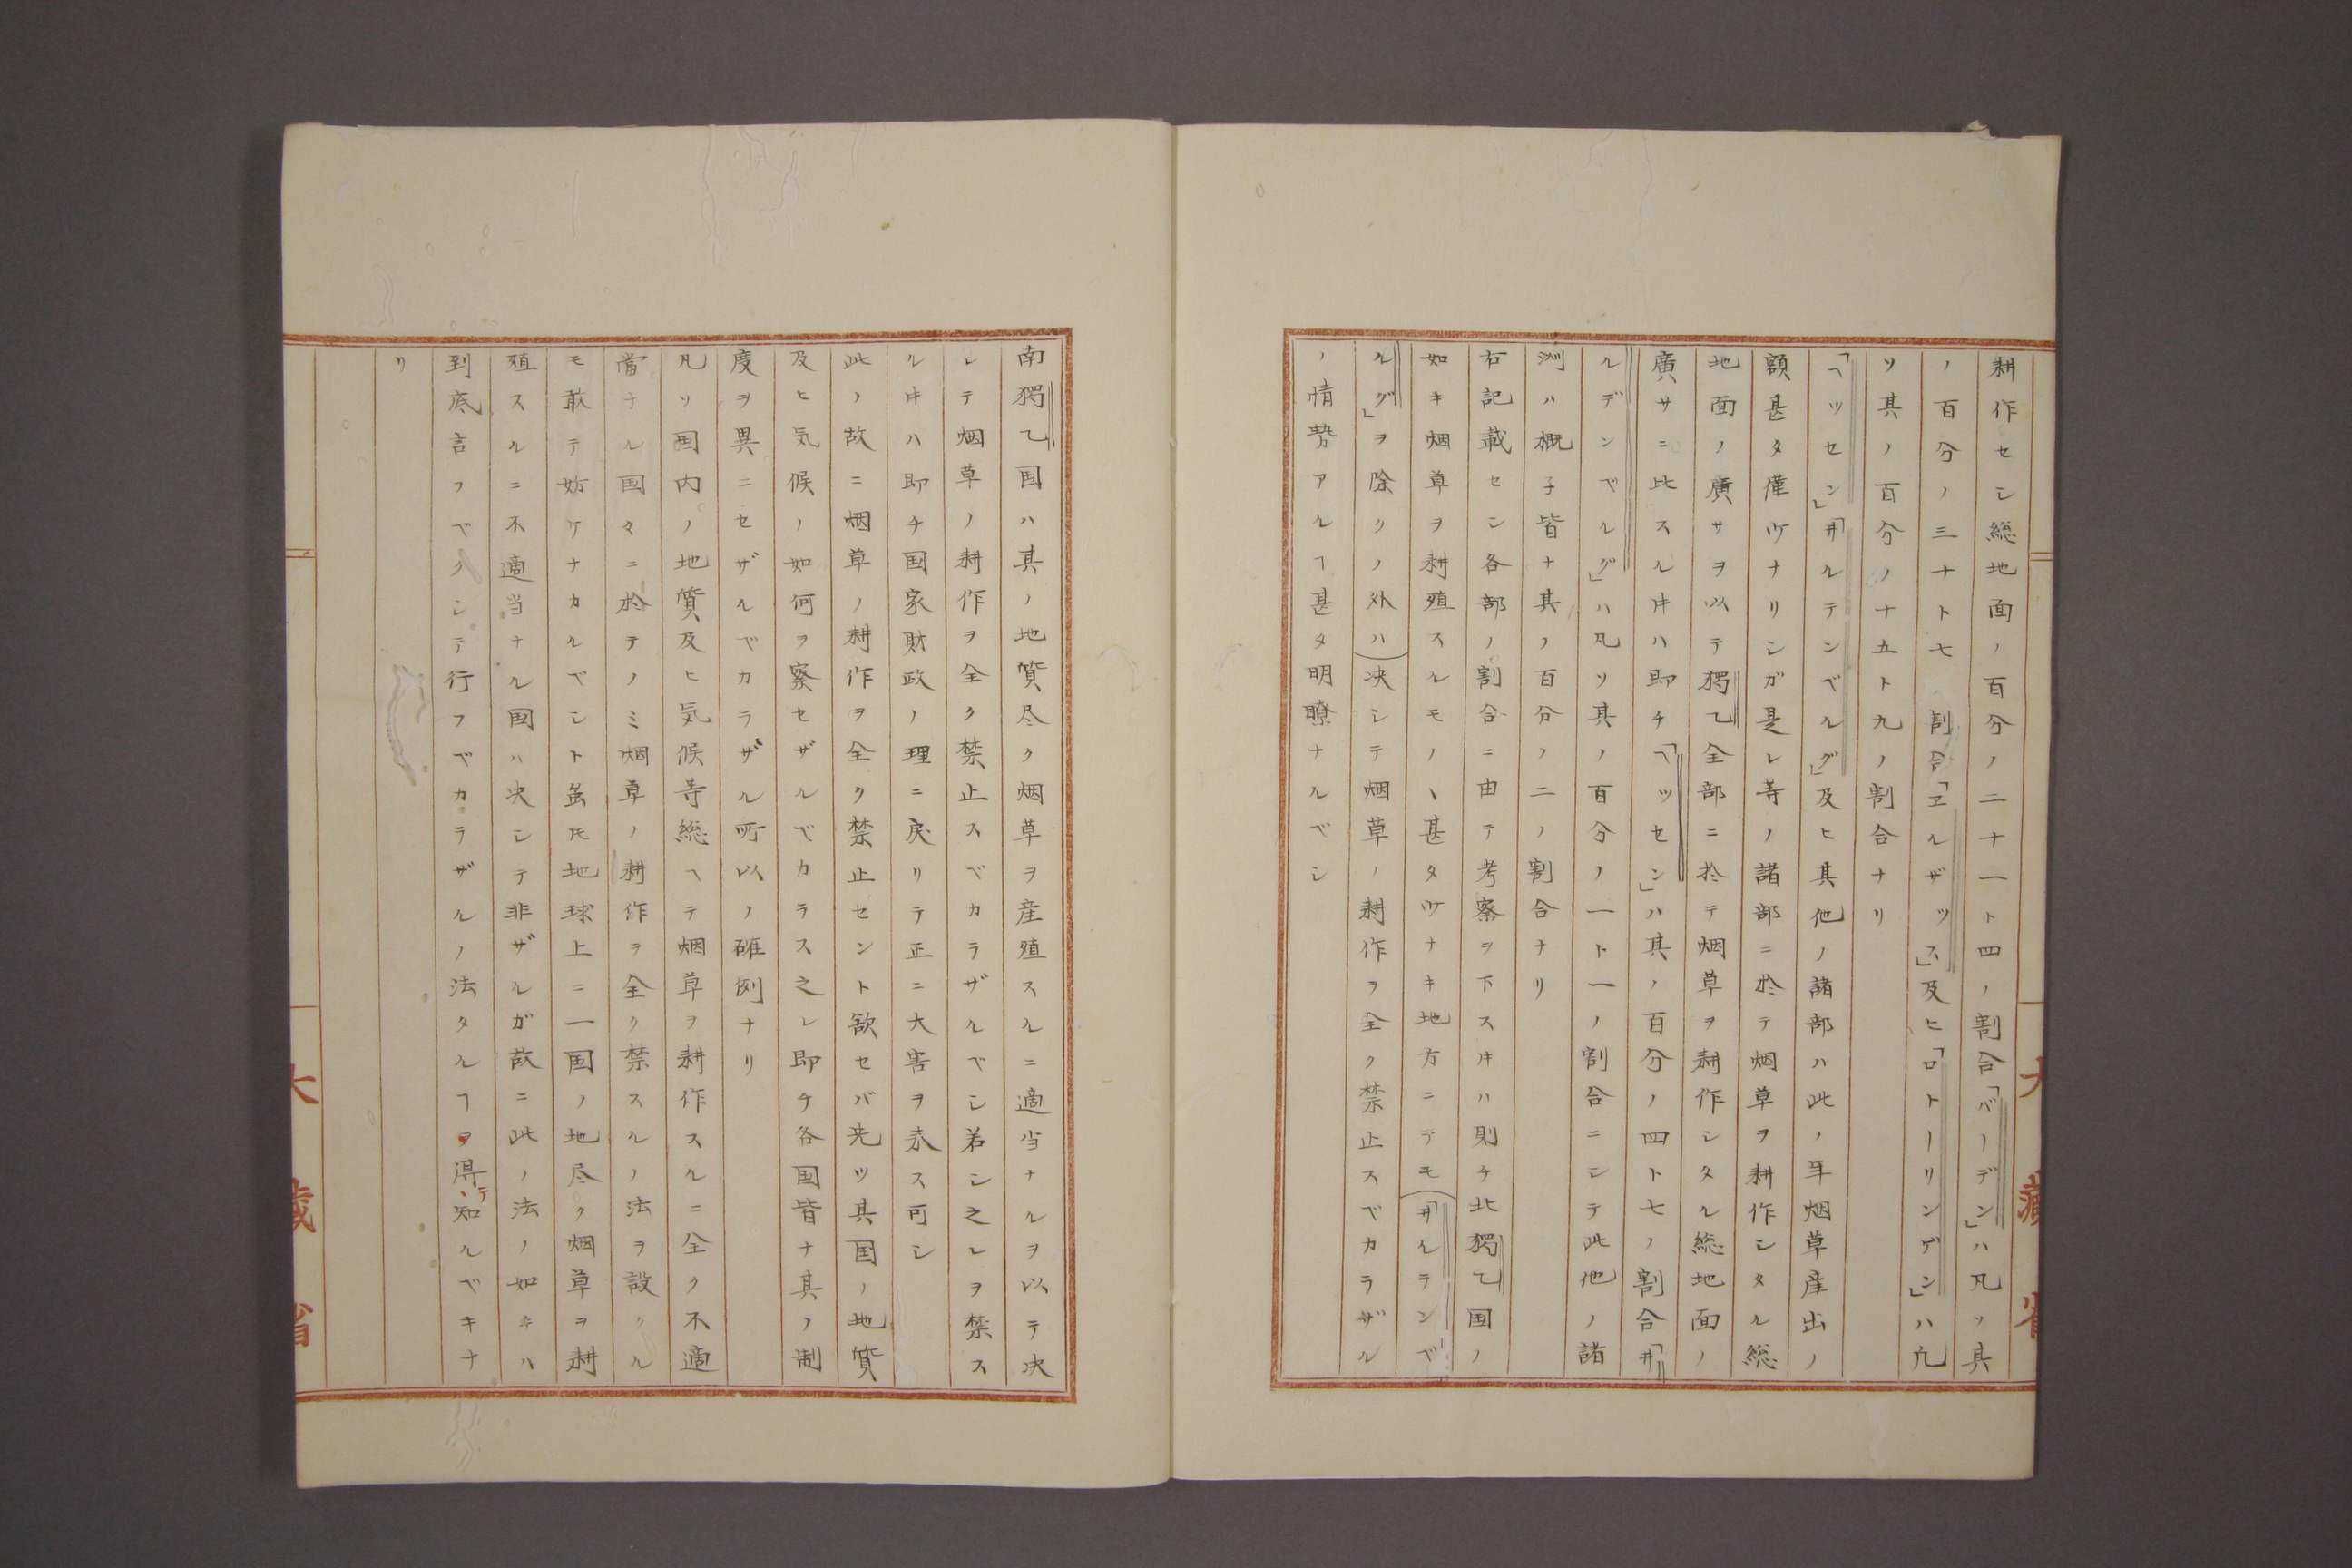 耕作セシ総地面ノ百分ノ二十一ト四ノ割合「バーデン」ハ凡ソ其
ノ百分ノ三十ト七ノ割合「ヱルザッス」及ヒ「ロトーリンゲン」ハ凡
ソ其ノ百分ノ十五ト九ノ割合ナリ
「ヘッセン」「ヰルテンベルグ」及ヒ其他ノ諸部ハ此ノ年烟草産出ノ
額甚タ僅少ナリシガ是レ等ノ諸部ニ於テ烟草ヲ耕作シタル総
地面ノ廣サヲ以テ獨乙全部ニ於テ烟草ヲ耕作シタル総地面ノ
廣サニ比スル時ハ即チ「ヘッセン」ハ其ノ百分ノ四ト七ノ割合「ヰ
ルデンベルグ」ハ凡ソ其ノ百分ノ一ト一ノ割合ニシテ此他ノ諸
洲ハ概子皆ナ其ノ百分ノ二ノ割合ナリ
右記載セシ各部ノ割合ニ由テ考察ヲ下ス片ハ則チ北獨乙国ノ
如キ烟草ヲ耕殖スルモノヽ甚タ少ナキ地方ニテモ(ヰルテンベ
ルグ」ヲ除クノ外ハ)决シテ烟草ノ耕作ヲ全ク禁止スベカラザル
ノ情勢アルヿ甚タ明瞭ナルベシ
南獨乙国ハ其ノ地質尽ク烟草ヲ産殖スルニ適当ナルヲ以テ决
シテ烟草ノ耕作ヲ全ク禁止スベカラザルベシ若シ之レヲ禁ス
ル片ハ即チ国家財政ノ理ニ戻リテ正ニ大害ヲ来ス可シ
此ノ故ニ烟草ノ耕作ヲ全ク禁止セント欲セバ先ツ其国ノ地質
及ヒ気候ノ如何ヲ察セザルベカラス之レ即チ各国皆ナ其ノ制
度ヲ異ニセザルベカラザル所以ノ確例ナリ
凡ソ国内ノ地質及ヒ気候等総ヘテ烟草ヲ耕作スルニ全ク不適
當ナル国々ニ於テノミ烟草ノ耕作ヲ全ク禁スルノ法ヲ設クル
モ敢テ妨ケナカルベシト虽𪜈地球上ニ一国ノ地尽ク烟草ヲ耕
殖スルニ不適当ナル国ハ决シテ非ザルガ故ニ此ノ法ノ如キハ
到底言フベクシテ行フベカラザルノ法タルヿヲ得テ知ルベキナ
リ
大藏省